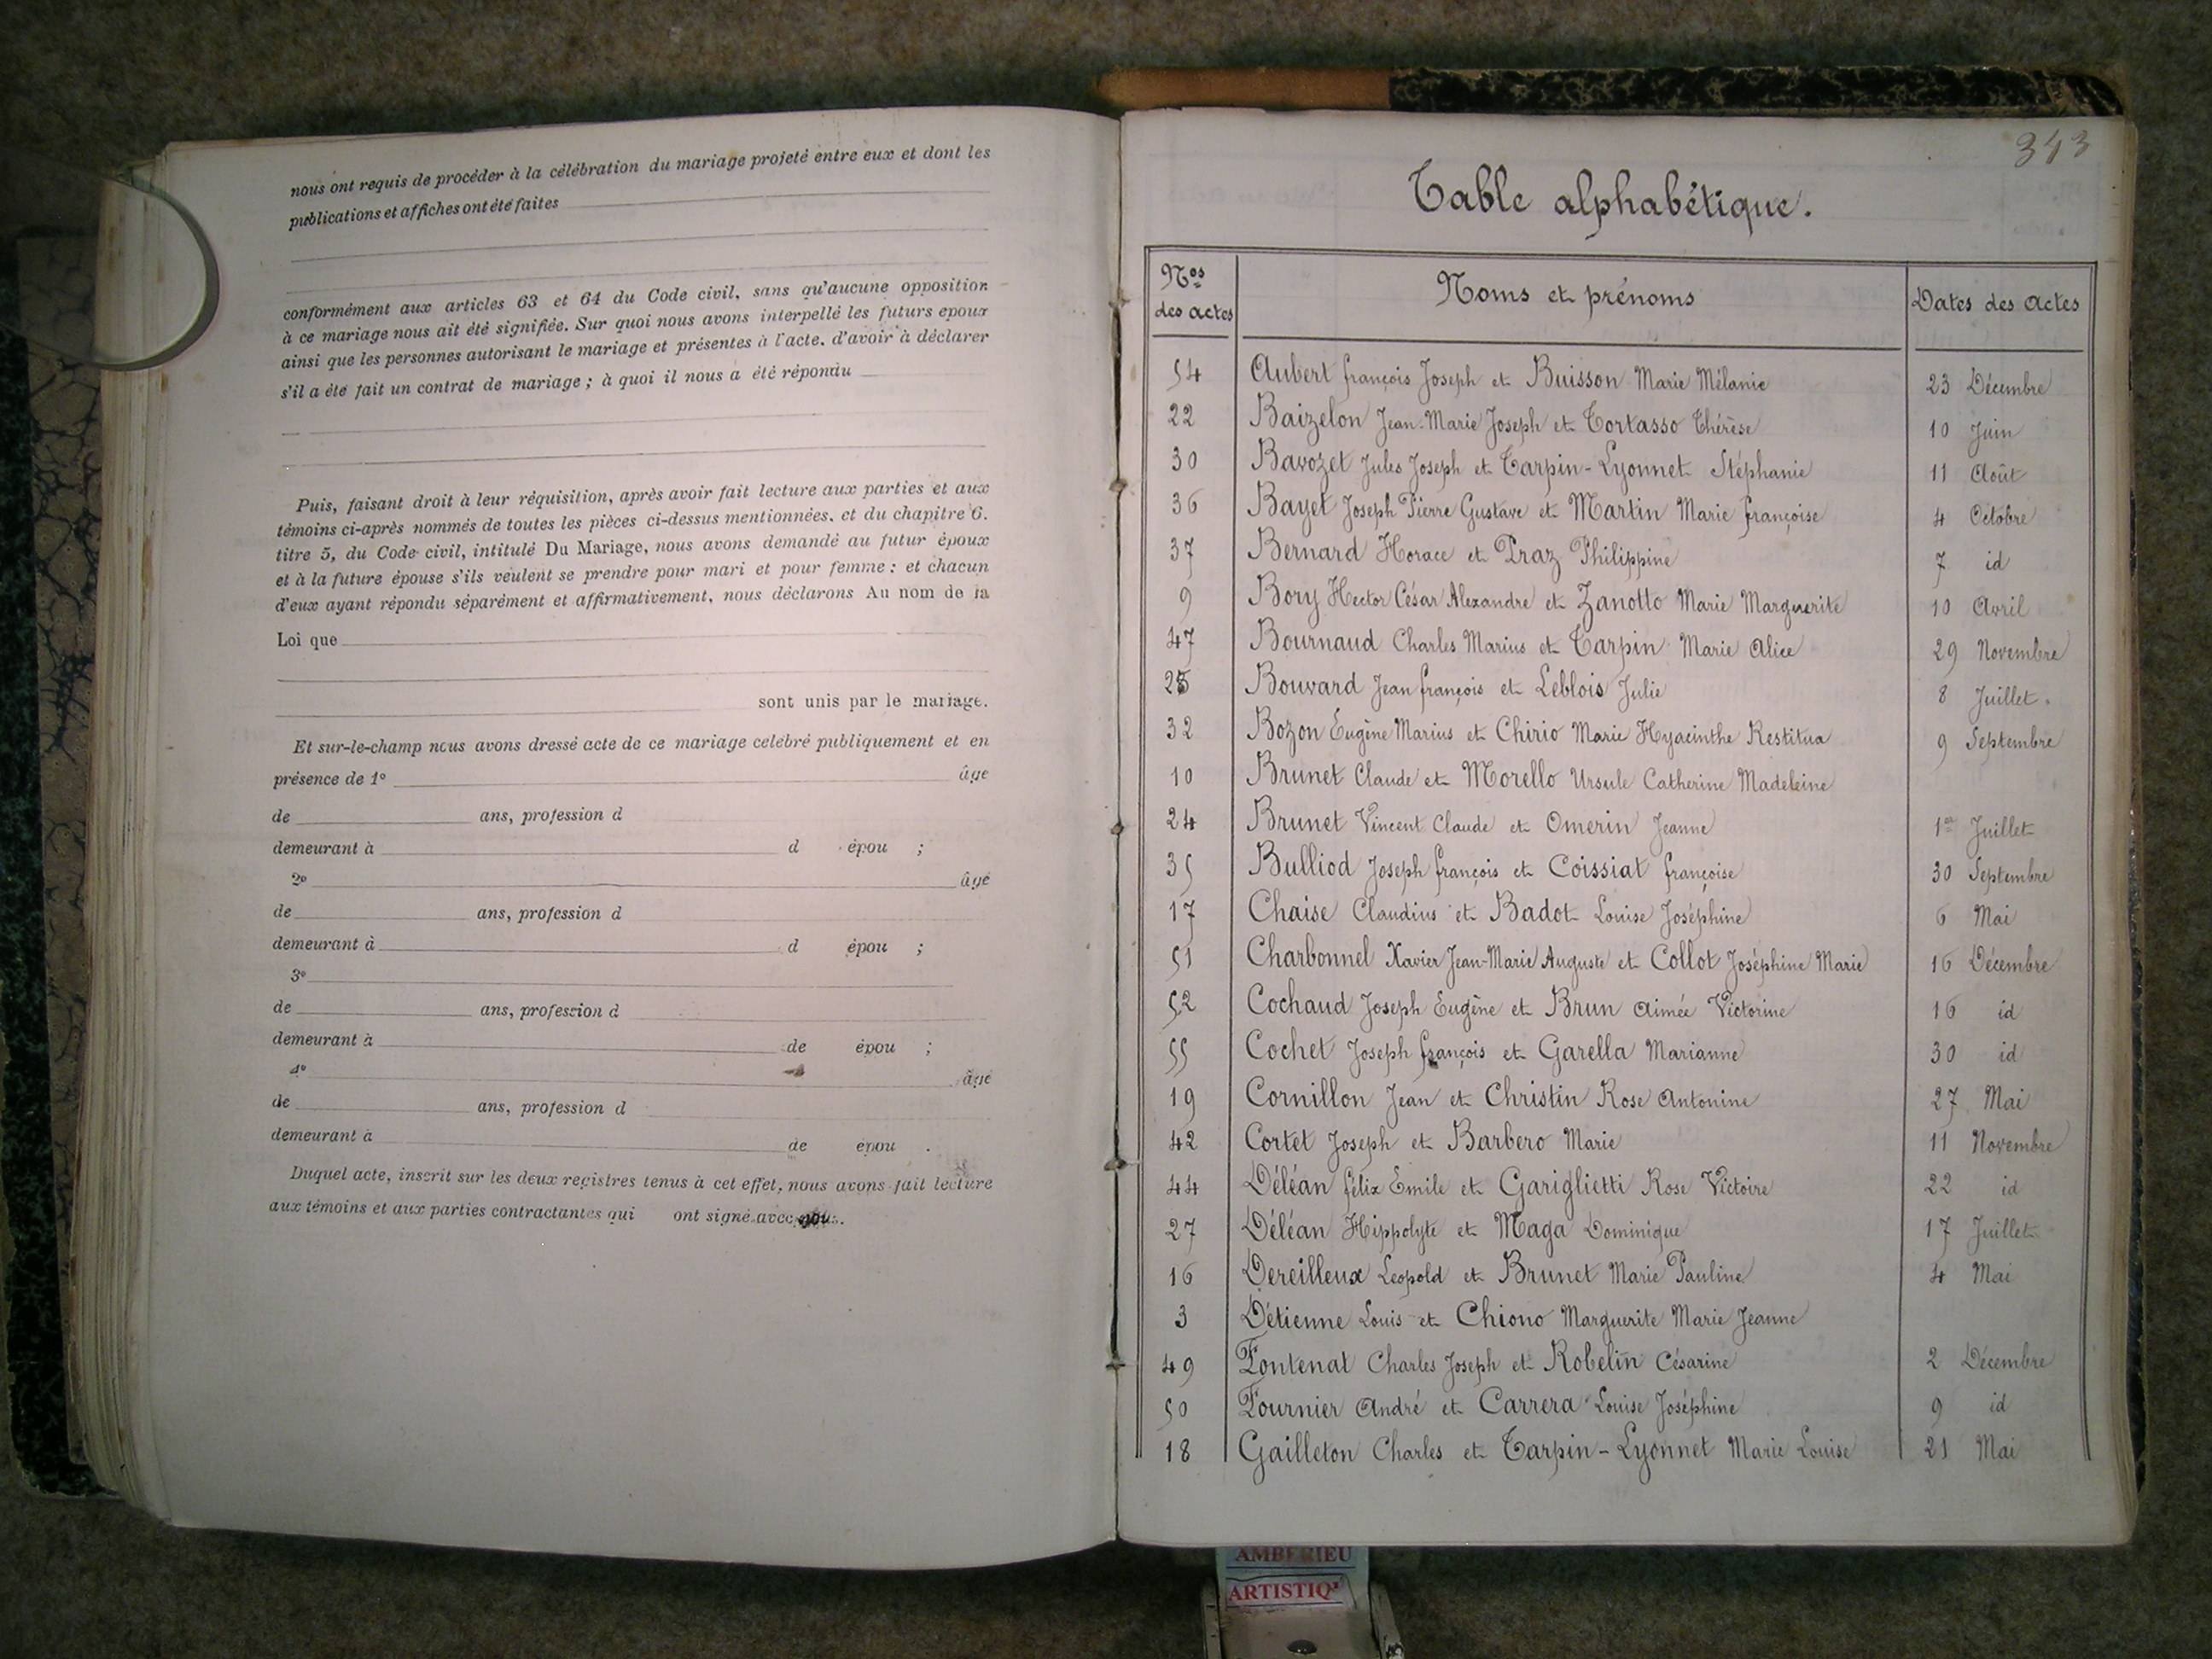 nous ont requis de procéder à la célébration du mariage projeté entre eux et dont les
publications et affiches ont été faites
conformément aux articles 63 et 64 du Code civil, sans qu'aucune opposition
à ce mariage nous ait été signifiée. Sur quoi nous avons interpellé les futurs epoux
ainsi que les personnes autorisant le mariage et présentes à l'acte, d'avoir à déclarer
s'il a été fait un contrat de mariage ; à quoi il nous a été répondu
Puis, faisant droit à leur réquisition, après avoir fait lecture aux parties et aux
témoins ci-après nommés de toutes les pièces ci-dessus mentionnées, et du chapitre 6,
titre 5, du Code civil, intitulé Du Mariage, nous avons demandé au futur époux
et à la future épouse s'ils veulent se prendre pour mari et pour femme : et chacun
d'eux ayant répondu séparément et affirmativement, nous déclarons Au nom de la
Loi que
sont unis par le mariage.
Et sur-le-champ nous avons dressé acte de ce mariage celébré publiquement et en
présence de 1º âge
de ans, profession d
demeurant à d épou ;
2º âgé
de ans, profession d
demeurant à d épou ;
3º
de ans, profession d
demeurant à de épou ;
4º âgé
de ans, profession d
demeurant à de épou .
Duquel acte, inscrit sur les deux registres tenus à cet effet, nous avons fait lecture
aux témoins et aux parties contractantes qui ont signé avec nous.
343
Table alphabétique.
Nos des actes Noms et prénoms Dates des actes
54 Aubert François Joseph et Buisson Marie Mélanie 23 Décembre
22 Baizelon Jean-Marie Joseph et Tortasso Thérèse 10 Juin
30 Bavozet Jules Joseph et Tarpin-Lyonnet Stéphanie 11 Août
36 Bayet Joseph Pierre Gustave et Martin Marie Françoise 4 Octobre
37 Bernard Horace et Praz Philippine 7 id
9 Bory Hector César Alexandre et Zanotto Marie Marguerite 10 Avril
47 Bournaud Charles Marius et Tarpin Marie Alice 29 Novembre
25 Bouvard Jean François et Leblois Julie 8 Juillet.
32 Bozon Eugène Marius et Chirio Marie Hyacinthe Restitua 9 Septembre
10 Brunet Claude et Morello Ursule Catherine Madeleine
24 Brunet Vincent Claude et Omerin Jeanne 1er Juillet
35 Bulliod Joseph François et Coissiat Françoise 30 Septembre
17 Chaise Claudius et Badot Louise Joséphine 6 Mai
51 Charbonnel Xavier Jean-Marie Auguste et Collot Joséphine Marie 16 Décembre
52 Cochaud Joseph Eugène et Brun Aimée Victorine 16 id
55 Cochet Joseph François et Garella Marianne 30 id
19 Cornillon Jean et Christin Rose Antonine 27 Mai
42 Cortet Joseph et Barbero Marie 11 Novembre
44 Déléan Félix Emile et Gariglietti Rose Victoire 22 id
27 Déléan Hippolyte et Maga Dominique 17 Juillet
16 Dereilleux Leopold et Brunet Marie Pauline 4 Mai
3 Détienne Louis et Chiono Marguerite Marie Jeanne
49 Fontenat Charles Joseph et Robelin Césarine 2 Décembre
50 Fournier André et Carrera Louise Joséphine 9 id
18 Gailleton Charles et Tarpin-Lyonnet Marie Louise 21 Mai
AMBERIEU
ARTISTIQ